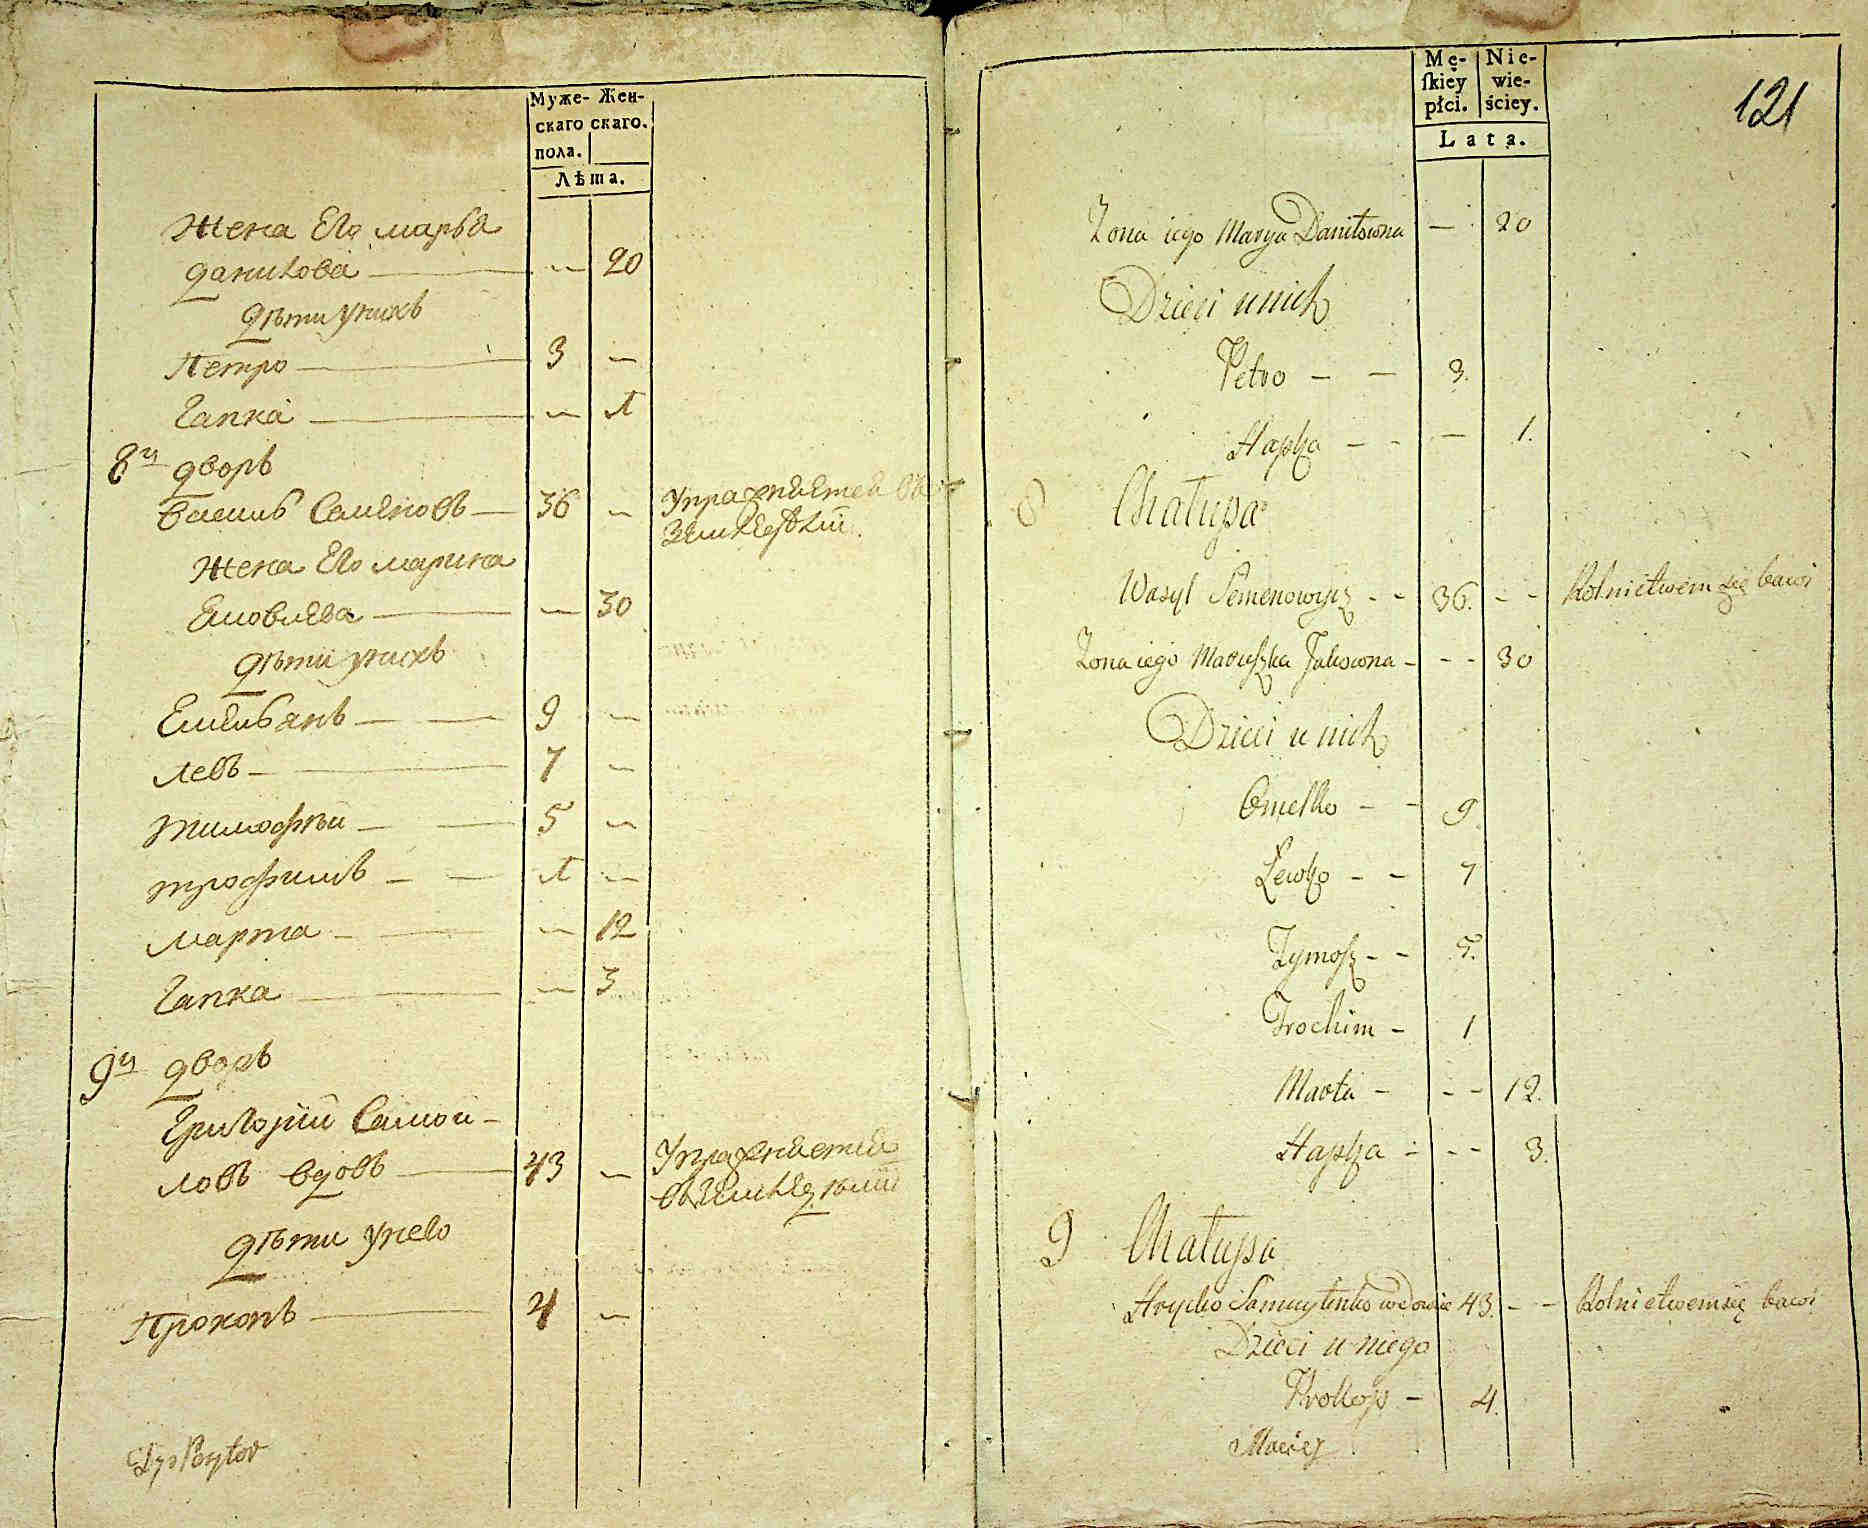 Муже- Жен-
скаго скаго.
пола.
Лѣта.
Жена Его марья
данилова — — 20
дѣти унихъ
Петро — 3 —
Гапка — — 1
8й дворъ
василь Семеновъ — 36 — Упражняетса въ
земледѣлии.
Жена Его марина
Ековлева — — 30
дѣти унихъ
Емельянъ — — 9 —
левъ — 7 —
тимофѣй — — 5 —
трофимъ — — 1 —
марта — — — 12
Гапка — — 3
9й дворъ
Григорий Самои-
ловъ вдовъ — 43 — Упражняетса
въземледѣлии
дѣти унево
Прокопъ — 4 —
Mę- Nie-
skiey wie-
płci. ściey.
Lata.
121
Zona iego Marya Daniłowna — 20
Dzieci u nich
Petro — — 3.
Hapka — — — 1.
8 Chałupa
Wasyl Semenowycz — — 36. — — Rolnictwem się bawi
Zona iego Maruszka Jakowna — — — 30
Dzieci u nich
Omelko — — 9
Lewko — — 7
Tymosz — — 5.
Trochim — 1
Marta — — — 12.
Hapka — — — 3.
9 Chałupa
Hrycko Samuylenko wdowiec 43. — — Rolnictwem się bawi
Dzieci u niego
Prokop — 4.
Maciey